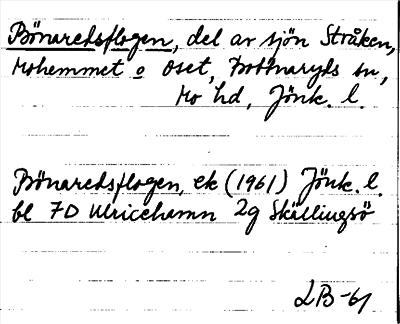 Bönaredsflogen, del av sjön Stråken,
Mohemmet o Oset, Bottnaryds sn,
Mo hd, Jönk. l.
Bönaredsflogen, ek (1961) Jönk. l.
bl 7D Ulricehamn 2g Skällingsö
LB-61